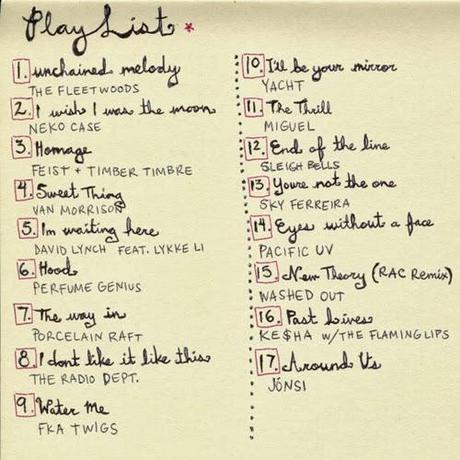 Play List *
1. unchained melody
THE FLEETWOODS
2. I wish I was the moon
NEKO CASE
3. Homage
FEIST + TIMBER TIMBRE
4. Sweet Thing
VAN MORRISON
5. Im waiting here
DAVID LYNCH FEAT. LYKKE LI
6. Hood
PERFUME GENIUS
7. The way in
PORCELAIN RAFT
8. I dont like it like this
THE RADIO DEPT.
9. Water Me
FKA TWIGS
10. I'll be your mirror
YACHT
11. The Thrill
MIGUEL
12. End of the line
SLEIGH BELLS
13. Youre not the one
SKY FERREIRA
14. Eyes without a face
PACIFIC UV
15. New Theory (RAC Remix)
WASHED OUT
16. Past Lives
KE$HA W/THE FLAMING LIPS
17. Around Us
JÓNSI